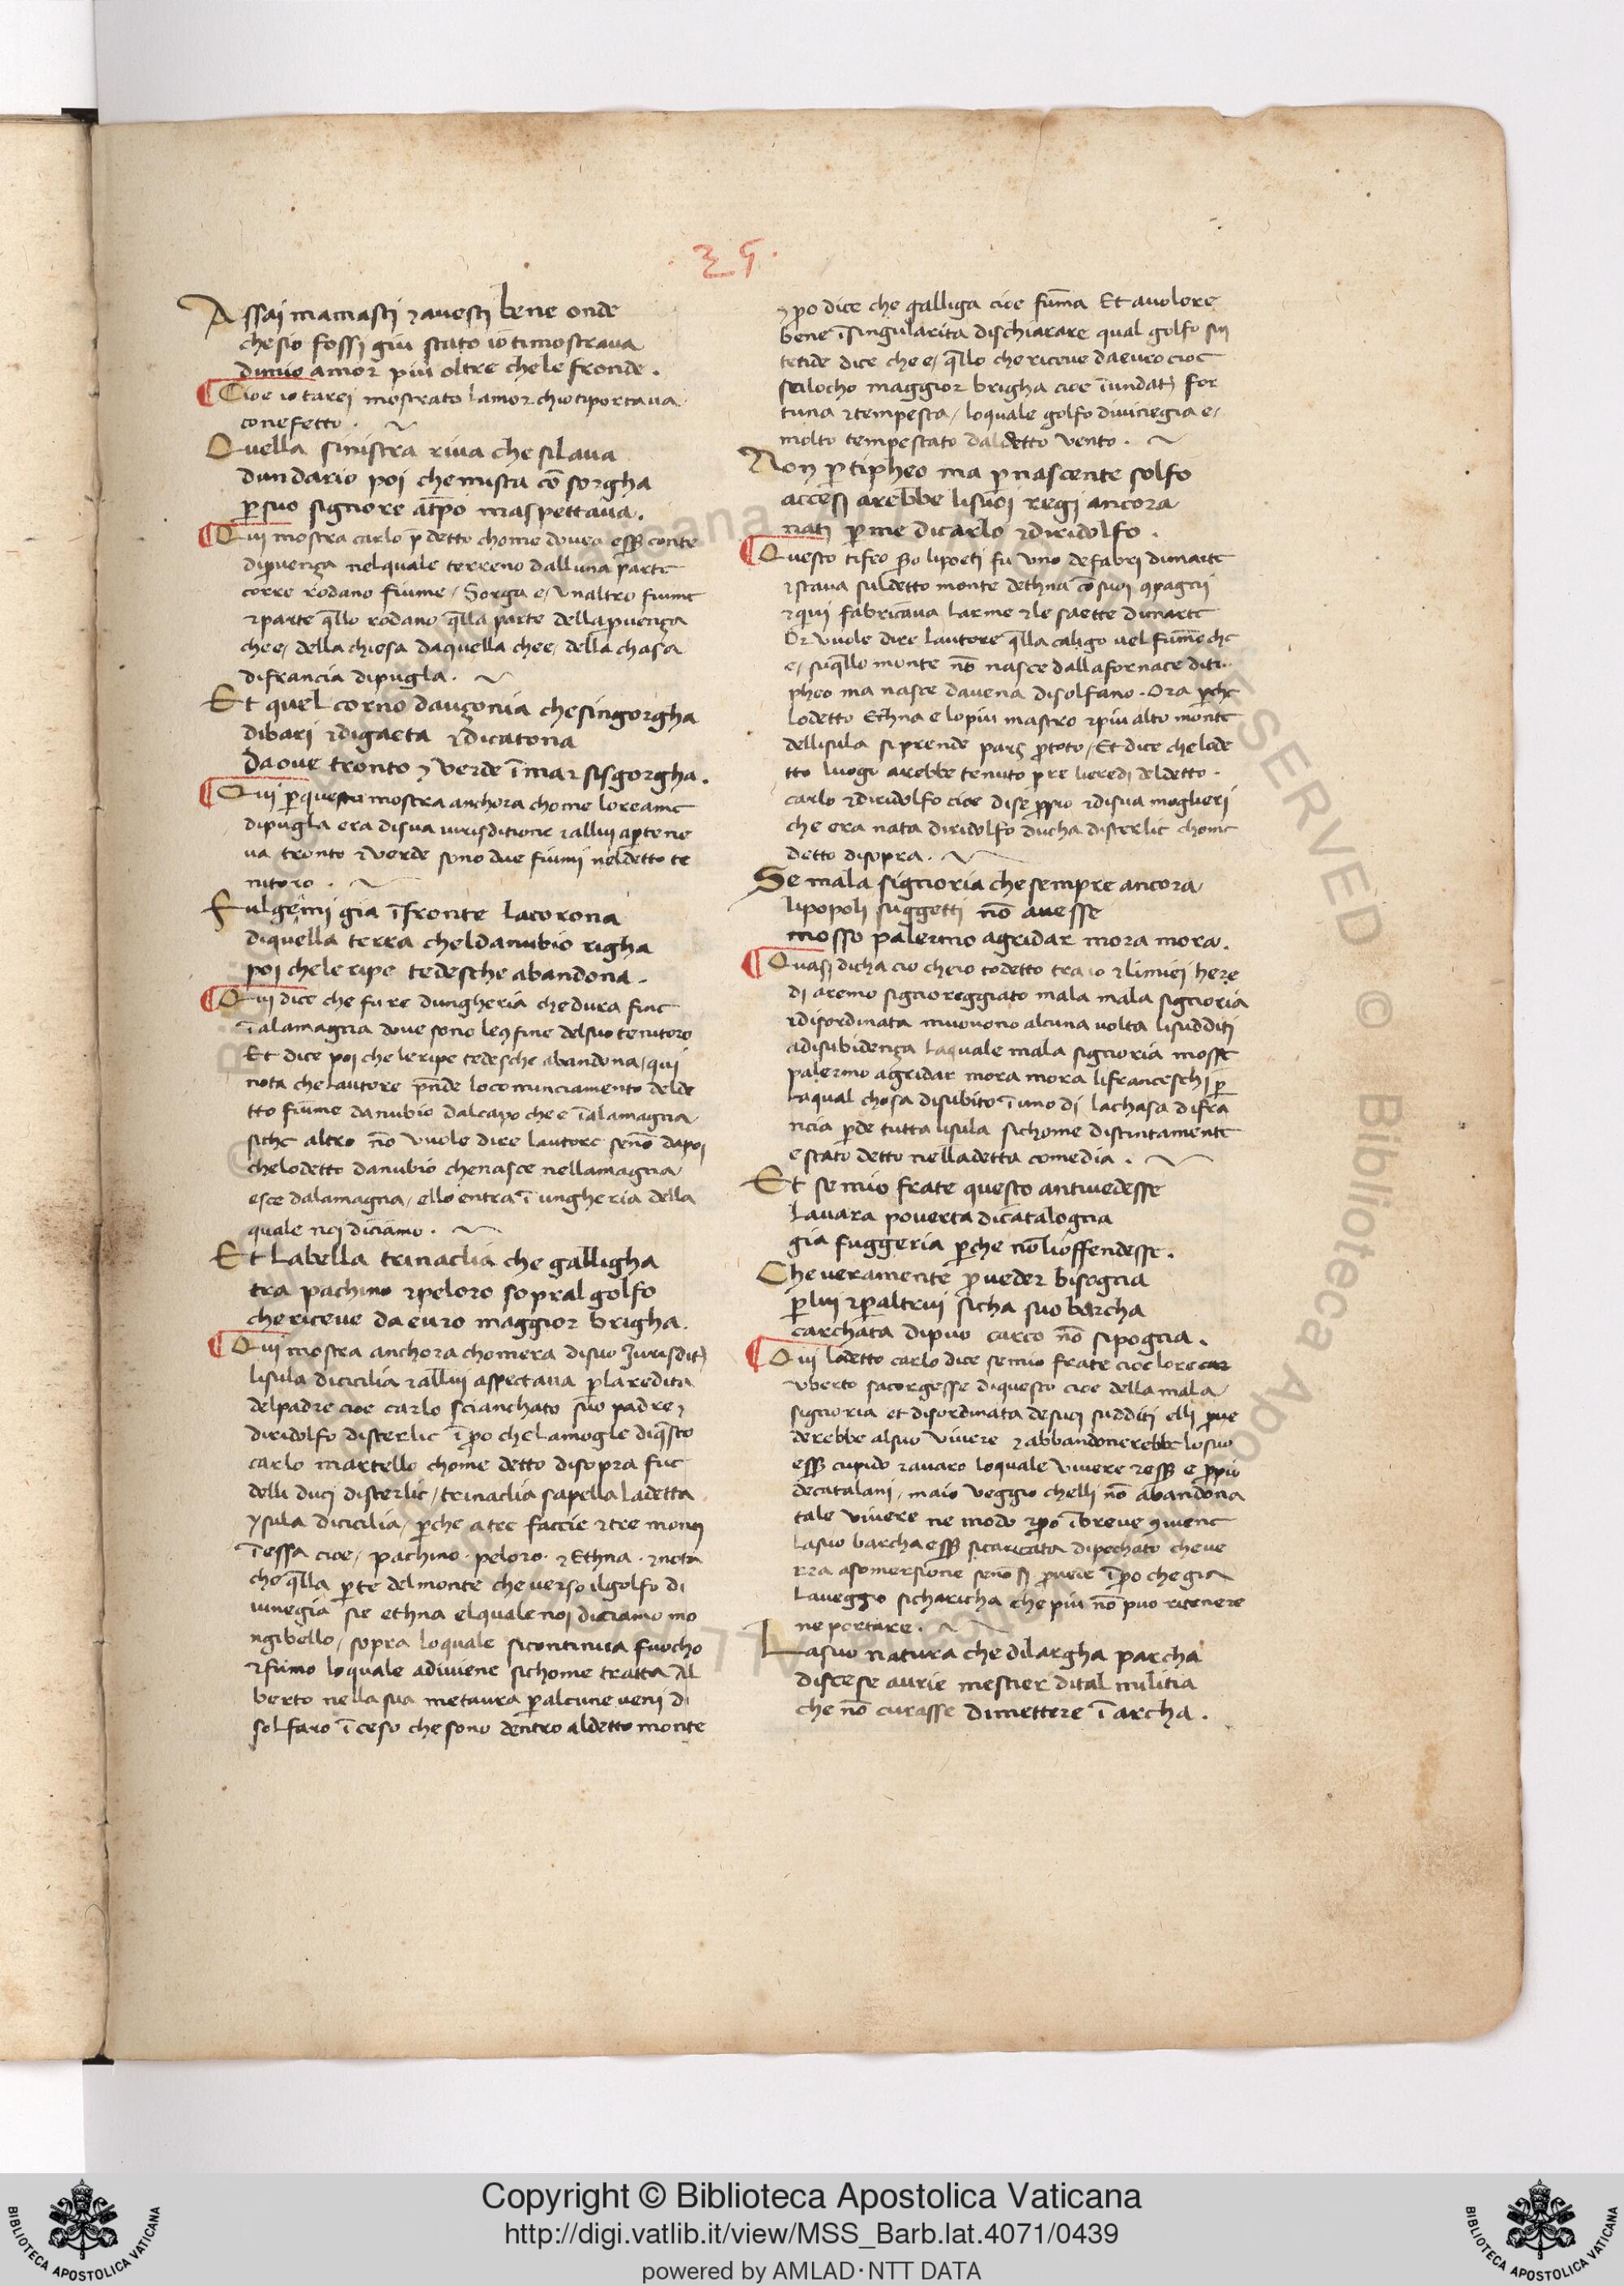 · 35 ·
Assai mamasti ⁊ avesti bene onde
chesio fossi giu stato io timostrava
dimio amor piu oltre chele fronde .
Cioe io tarei mostrato lamor chiotiportava
conefetto .
Quella sinistra riva che silava
dundario poi chemista cō sorgha
p̱ suo signore atp̄o maspettava .
Qui mostra carlo p̄detto chome dovea eſſ̄ conte
dip̱vença nelquale terreno dalluna parte
corre rodano fiume / Sorga e / vnaltro fiume
⁊ parte q̄llo rodano q̄lla parte della p̱vença
che e / della chiesa daquella che e / della chasa
difrancia dipugla .
Et quel corno dauçonia chesingorgha
dibari ⁊ digaeta ⁊ dicatona
Daove tronto ⁊ verde ī mar sisgorgha .
Qui p̱ questa mostra anchora chome loreame
dipugla era disua iurisditione ⁊ allui ap̱tene
va tronto ⁊ verde sono due fiumi neldetto te
nitoro .
Fulgemi gia ī fronte lacorona
diquella terra cheldanubio righa
poi chele ripe tedesche abandona .
Qui dice che fu re dungheria che dura fine
ī alamagna dove sono le ꝯfine delsuo tenitoro
Et dice poi che le ripe tedesche abandona / qui
nota che lautore p̄nde locominciamento delde
tto fiume danubio dalcapo che e ī alamagna
siche altro nō vuole dire lautore senō dapoi
chelodetto danubio chenasce nellamagna
esce dalamagna / ello entra ī ungheria della
quale noi diciamo .
Et Labella trinaclia che galligha
tra pachino ⁊ peloro sopral golfo
che riceve da euro maggior brigha .
Qui mostra anchora chomera disuo Jurisdit̄
lisula dicicilia ⁊ allui aspectava p̱ laredita
delpadre cioe carlo scianchato suo padre ⁊
diridolfo disterlic īp̱o che lamogle diq̄sto
carlo martello chome detto disopra fue
delli duci disterlic / trinaclia sapella ladetta
ysula dicicilia / p̱che a tre faccie ⁊ tre monti
ī essa cioe / pachino · peloro · ⁊ Ethna · ⁊ nota
che q̄lla p̱te delmonte che verso ilgolfo di
vinegia sie ethna elquale noi diciamo mo
ngibello / sopra loquale sicontinua fuocho
⁊ fumo loquale adiviene sichome tratta Al
berto nella sua metaura p̱ alcune veni di
solfaro ī ceso che sono dentro aldetto monte
⁊ p̱o dice che galliga cioe fūma Et avolere
bene ī singularita dischiarare qual golfo sin
tetide dice che e / q̄llo che riceve daeuro cioe
scilocho maggior brigha cioe ī undat̄ for
tuna ⁊ tempesta / loquale golfo divinegia e /
molto tempestato daldetto vento .
Non p̱ tipheo ma p̱ nascente solfo
accesi arebbe lisuoi regi ancora
nati p̱ me dicarlo ⁊ diridolfo .
Questo tifeo s̄o lipoeti fu uno defabri dimarte
⁊ stava suldetto monte dethna cō suoi ꝯpagni
⁊ qui fabricava larme ⁊ le saette dimarte
Or vuole dire lautore q̄lla caligo vel fūme che
e / suq̄llo monte nō nasce dallafornace diti
pheo ma nasce davena disolfano . Ora p̱che
lodetto Ethna e lopiu mastro ⁊ piu alto monte
dellisula si prende pars p̱toto / Et dice chelode
tto luogo arebbe tenuto p̱ re lieredi deldetto
carlo ⁊ diridolfo cioe dise p̱pio ⁊ disua moglieri
che era nata diridolfo ducha disterlic chome
detto disopra .
Se mala signoria che sempre ancora
lipopoli suggetti nō avesse
mosso palermo agridar mora mora .
Quasi dicha cio cheio todetto tra io ⁊ limiei here
di aremo signoreggiato mala mala signoria
⁊ disordinata muovono alcuna volta lisudditi
adisubidença laquale mala signoria mosse
palermo agridar mora mora lifranceschi p̱
laqual chosa disubito ī uno di lachasa difra
ncia p̱de tutta lisula sichome distintamente
e stato detto nelladetta comedia .
Et se mio frate questo antivedesse
lavara poverta dicatalogna
gia fuggeria p̱che nō lioffendesse .
Che veramente p̱veder bisogna
p̱ lui ⁊ p̱ altrui sicha suo barcha
carchata dipuo carco nō sipogna .
Qui lodetto carlo dice semio frate cioe lore car
vberto sacorgesse diquesto cioe della mala
signoria et disordinata desuoi sudditi elli p̱ve
derebbe alsuo vivere ⁊ abbandonerebbe losuo
eſſ̄ cupido ⁊ avaro loquale vivere ⁊ eſſ̄ e p̱pio
decatalani / maio veggio chelli nō abandona
tale vivere ne modo ⁊ p̱o ī breve ꝯviene
lasuo barcha eſſ̄ sicaricata dipechato cheve
rra asomersione senō si p̱vede īp̱o che gia
laveggio sicharicha che piu nō puo ritenere
ne portare .
Lasuo natura che dilargha parcha
discese avrie mestier dital militia
che nō curasse dimettere ī archa .
Copyright © Biblioteca Apostolica Vaticana
http://digi.vatlib.it/view/MSS_Barb.lat.4071/0439
powered by AMLAD·NTT DATA